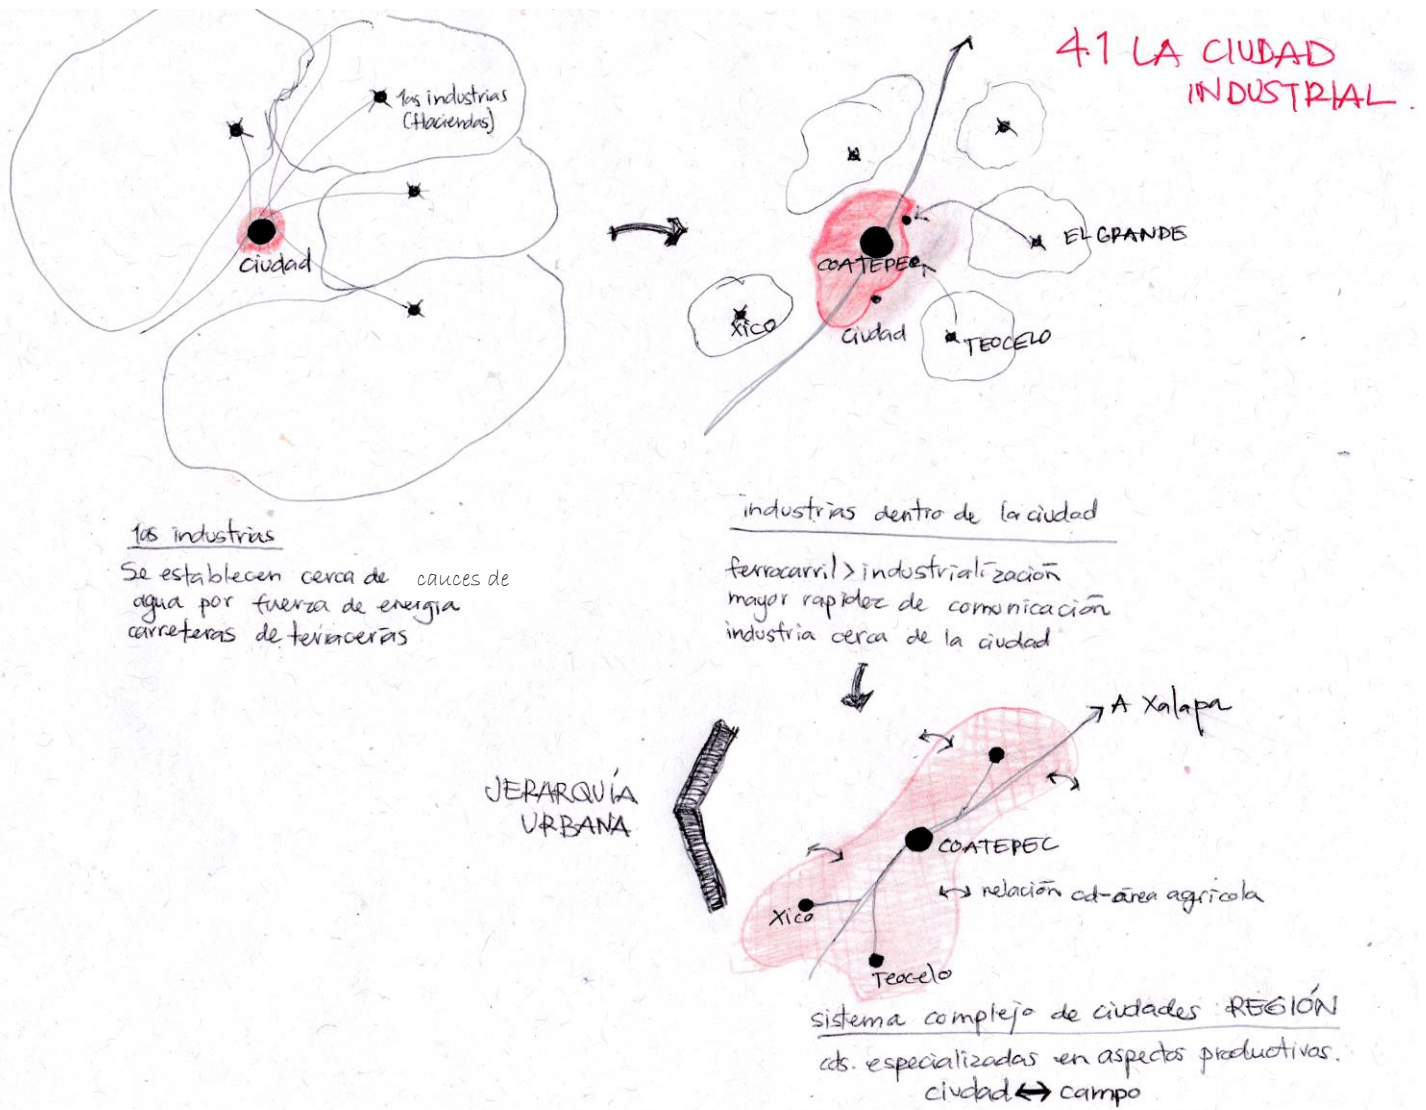 4.1 LA CIUDAD
INDUSTRIAL.
las industrias
(Haciendas)
ciudad
EL GRANDE
COATEPEC
XICO
ciudad
TEOCELO
las industrias
Se establecen cerca de cauces de
agua por fuerza de energia
carreteras de terracerias
industrias dentro de la ciudad
ferrocarril > industrialización
mayor rapidez de comunicación
industria cerca de la ciudad
A Xalapa
JERARQUÍA
URBANA
COATEPEC
↔ relación cd-área agrícola
Xico
Teocelo
sistema complejo de ciudades REGIÓN
cds. especializadas en aspectos productivos.
ciudad ↔ campo